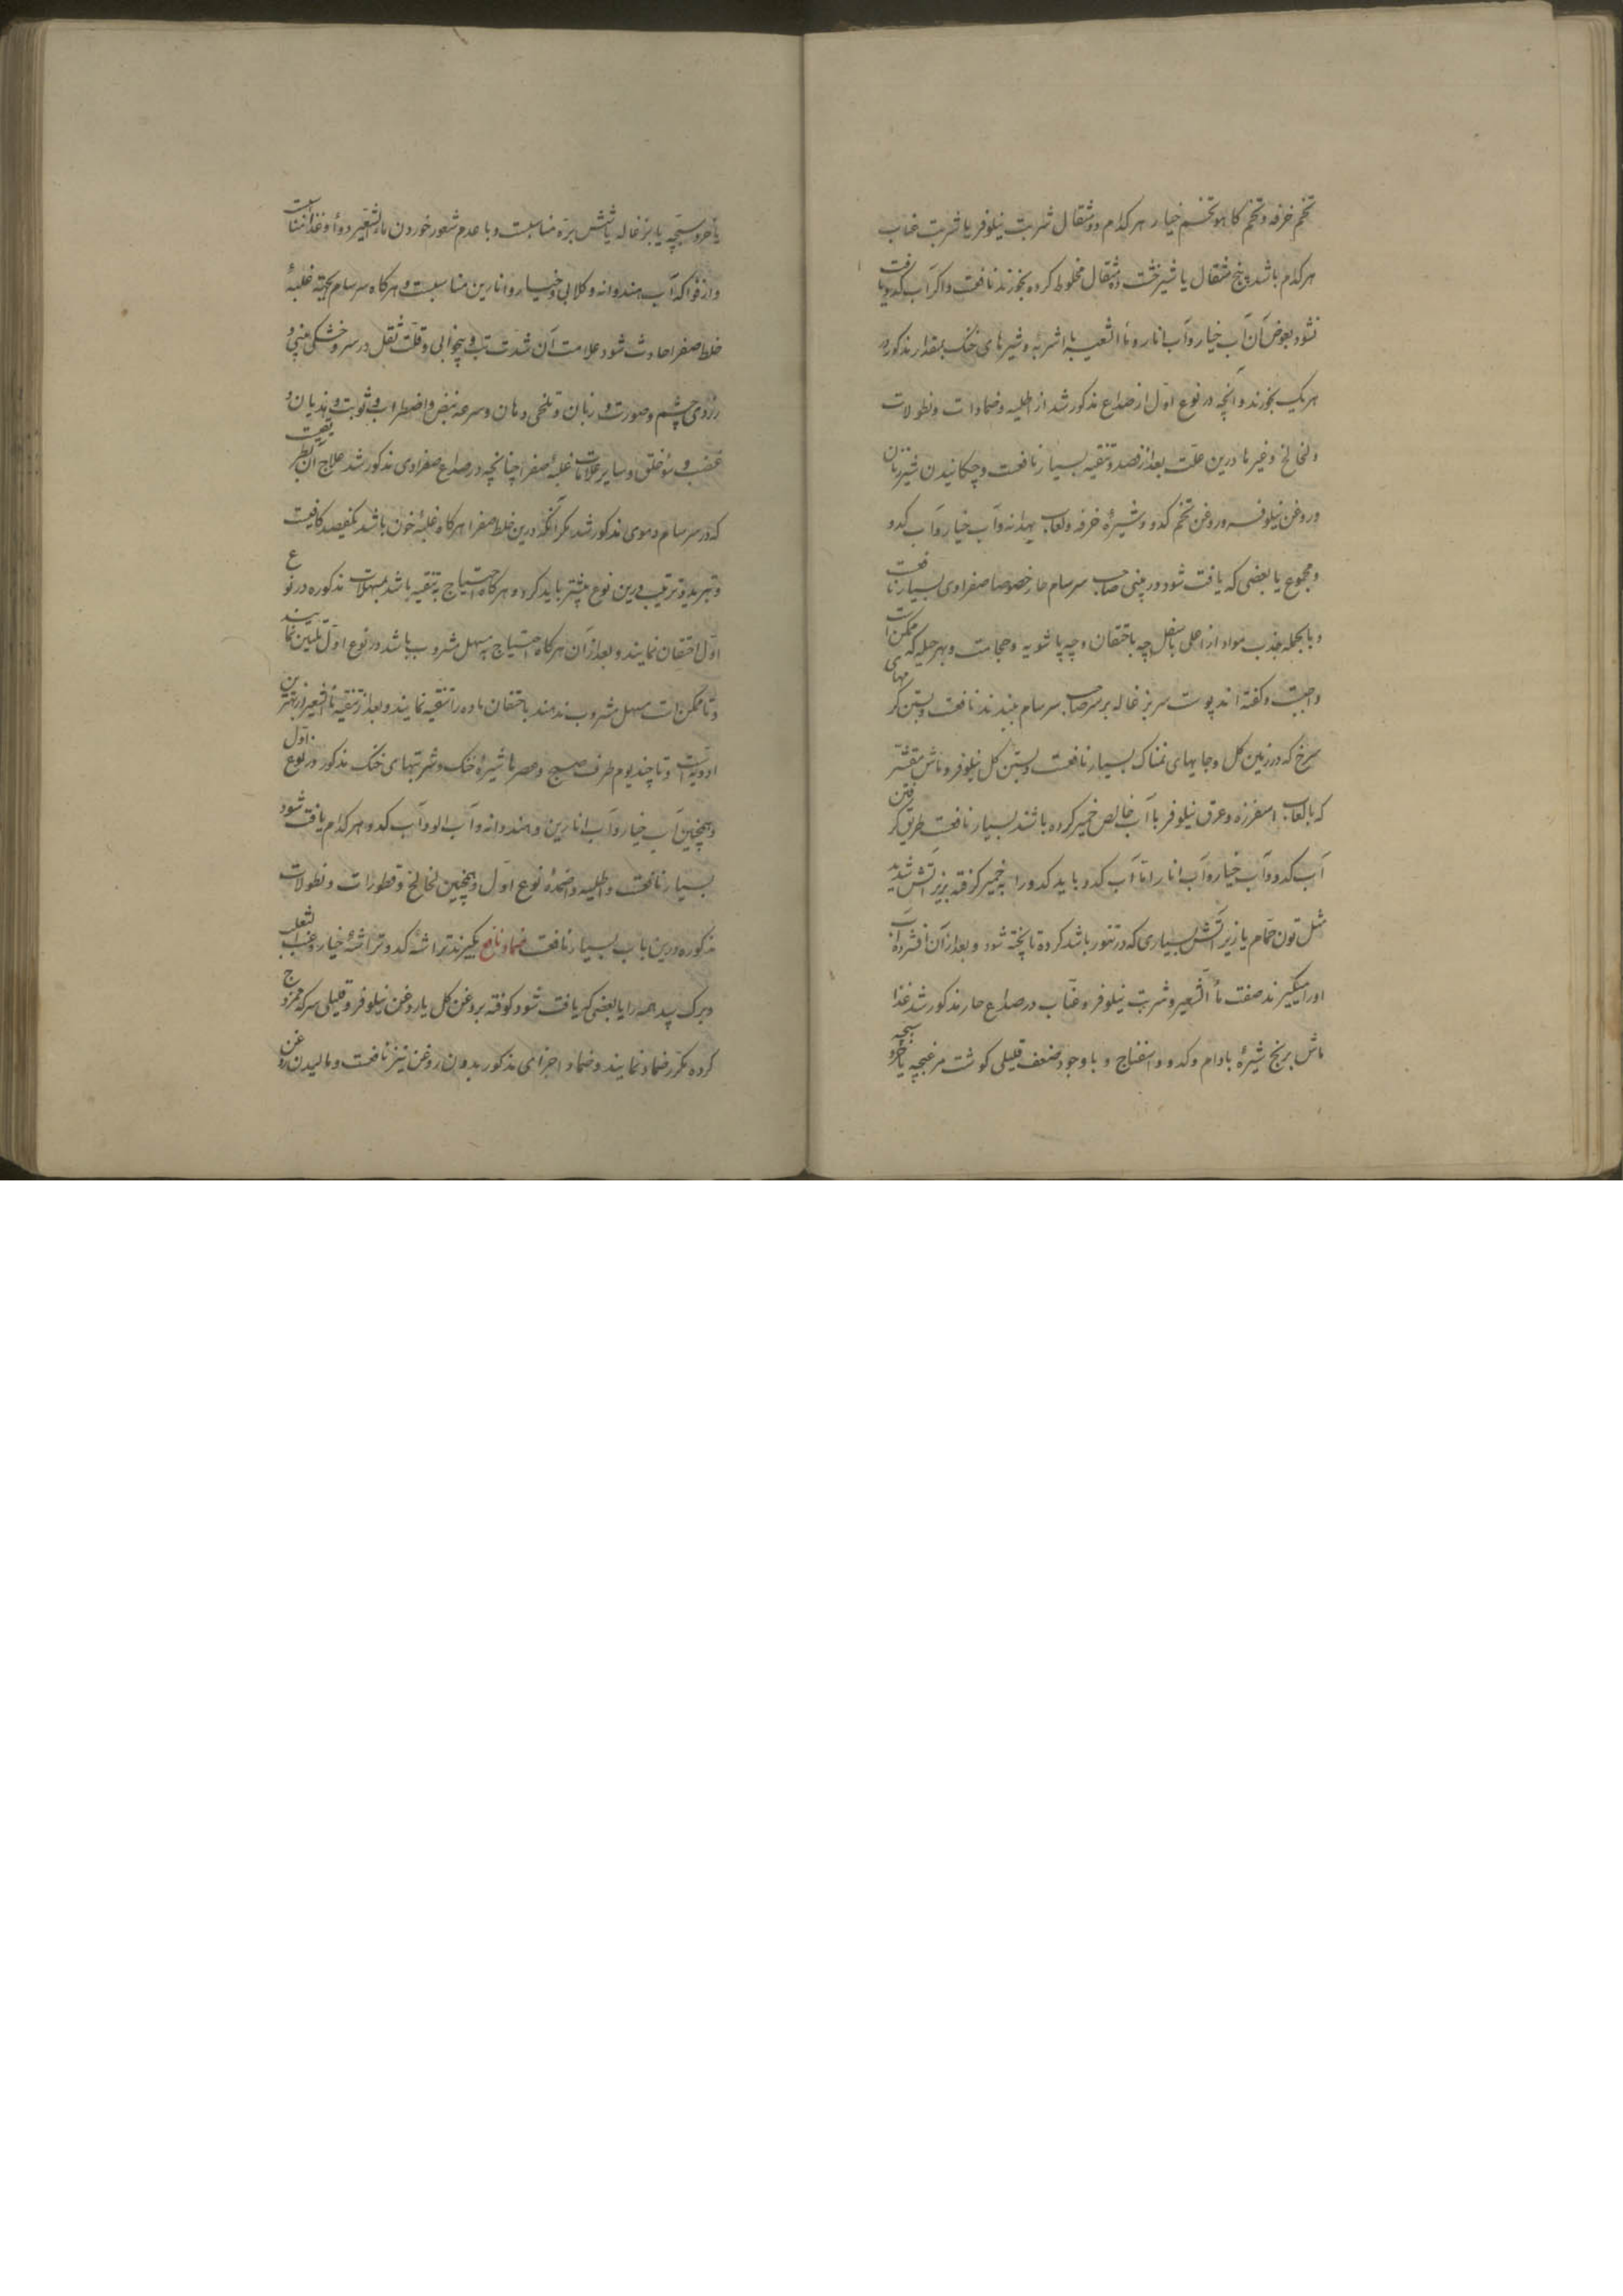 تخم خرفه و تخم کاهو تخم خیار هر کدام دو مثقال شربت نیلوفر یا شربت عناب
هر کدام باشد پنج مثقال یا شیرخشت ده مثقال مخلوط کرده بخورند نافعست و اکر آب کدو یافت
نشود بعوض آن آب خیار و آب انار و ماء الشعیر با اشربه و شیرهای خنک بمقدار مذکور در
هر یک بخورند و آنچه در نوع اول از صداع مذکور شد از اطلیه و ضمادات و نطولات
و لخالخ و غیرها درین علت بعد از فصد و تنقیه بسیار نافعست و چکانیدن شیر زنان
و روغن نیلوفر و روغن تخم کدو و شیرهٔ خرفه و لعاب بهدانه و آب خیار و آب کدو
و مجموع یا بعضی که یافت شود در بینی صاحب سرسام حار خصوصا صفراوی بسیار نافعست
و بالجمله جذب مواد از اعلی باسفل چه باحتقان و چه پاشویه و حجامت و بهر حیله که ممکن است
واجبست و کفته اند پوست سر بزغاله بر سر صاحب سرسام بندند نافعست و بستن کرمهای
سرخ که در زمین کل و جایهای نمناک بسیار نافعست و بستن کل نیلوفر و ماش مقشر
که با لعاب اسفرزه و عرق نیلوفر یا آب خالص خمیر کرده باشند بسیار نافعست طریق کرفتن
آب کدو و آب خیار و آب انار اما آب کدو باید کدو را به خمیر کرفته بزیر آتش شدید
مثل تون حمام یا زیر آتش بسیاری که در تنور باشد کرده تا پخته شود و بعد از آن افشرده آب
او را میکیرند صفت ماء الشعیر و شربت نیلوفر و عناب در صداع حار مذکور شد غذا
ماش برنج شیرهٔ بادام و کدو و اسفناج و با وجود ضعف قلیلی کوشت مرغبچه یا خروسبچه
یا خروسبچه یا بزغاله یا شش بره مناسبست و با عدم شعور خوردن ماء الشعیر دواء و غذاء مناسبست
و از فواکه آب هندوانه و کلابی و خیار و انارین مناسبست و هر کاه سرسام بجهة غلبهٔ
خلط صفرا حادث شود علامت آن شدت تب و بیخوابی و قلت ثقل در سر و خشکی بینی و
زردی چشم و صورت و زبان و تلخی دهان و سرعه نبض و اضطراب و هذیان و
غضب و سوء خلق و سایر علامات غلبهٔ صفرا چنانچه در صداع صفراوی مذکور شد علاج آن بطریقیست
که در سرسام دموی مذکور شد مکر آنکه درین خلط صفرا هر کاه غلبهٔ خون باشد یکفصد کافیست
و تبرید و ترتیب درین نوع بیشتر باید کرد و هر کاه احتیاج به تنقیه باشد بمسهلات مذکوره در نوع
اول احتقان نمایند و بعد از آن هر کاه احتیاج به مسهل مشروب باشد در نوع اول تلیین نمایند
و تا ممکن است مسهل مشروب ندهند باحتقان ماده را تنقیه نمایند و بعد از تنقیه ماء الشعیر از بهترین
ادویه است و تا چند یوم طرف صبح و عصرها شیرهٔ خنک و شربتهای خنک مذکور در نوع اول
و همچنین آب خیار و آب انارین و هندوانه و آب الو و آب کدو هر کدام یافت شود
بسیار نافعست و اطلیه و اضمدهٔ نوع اول و همچنین لخالخ و قطورات و نطولات
مذکوره درین باب بسیار نافعست ضماد نافع بکیرند تراشهٔ کدو و تراشهٔ خیار و عنب الثعلب
و برک بید همه را یا بعضی که یافت شود کوفته بروغن کل یا روغن نیلوفر و قلیلی سرکه ممزوج
کرده مکرر ضماد نمایند و ضماد اجزای مذکور بدون روغن نیز نافعست و مالیدن روغن